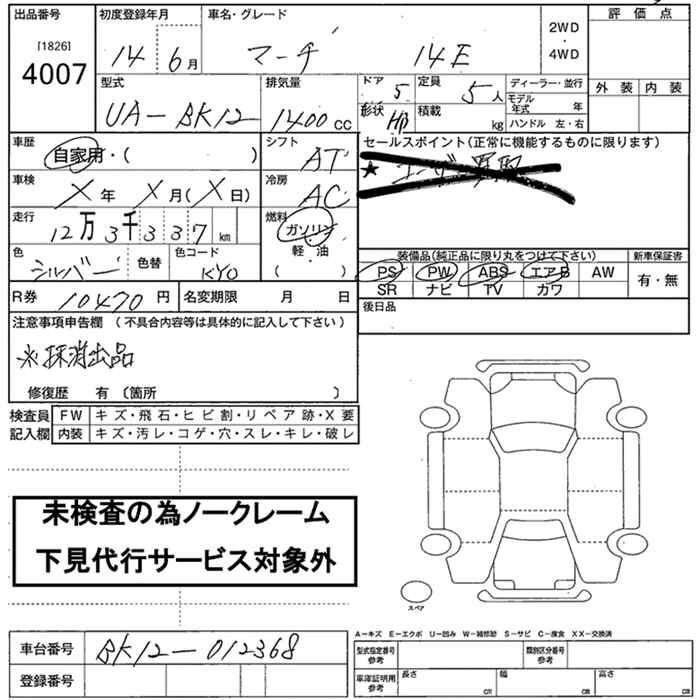 出品番号 初度登録年月 車名・グレード 評価点
[1826]
4007 14 6月 マーチ 14E 2WD・4WD 外装 内装
型式 排気量 ドア 5 定員 5人 ディーラー・並行
UA-BK12 1400cc 形状 HB 積載 kg モデル年式 年
ハンドル 左・右
車歴 自家用・( ) シフト AT セールスポイント(正常に機能するものに限ります)
車検 X年 X月(X日) 冷房 AC ★ユーザー買取
走行 12万3千337km 燃料 ガソリン
軽・油
( )
色 シルバー 色替 色コード KY0
装備品(純正品に限り丸をつけて下さい) 新車保証書
PS PW ABS エアB AW 有・無
SR ナビ TV カワ
R券 10470円 名変期限 月 日 後日品
注意事項申告欄 (不具合内容等は具体的に記入して下さい)
※抹消出品
修復歴 有 〔箇所 〕
検査員 FW キズ・飛石・ヒビ割・リペア跡・X要
記入欄 内装 キズ・汚レ・コゲ・穴・スレ・キレ・破レ
未検査の為ノークレーム
下見代行サービス対象外
スペア
A-キズ E-エクボ U-凹み W-補修跡 S-サビ C-腐食 XX-交換済
車台番号 BK12-012368 型式指定番号 参考 類別区分番号 参考
登録番号 車庫証明用 参考 長さ cm 幅 cm 高さ cm